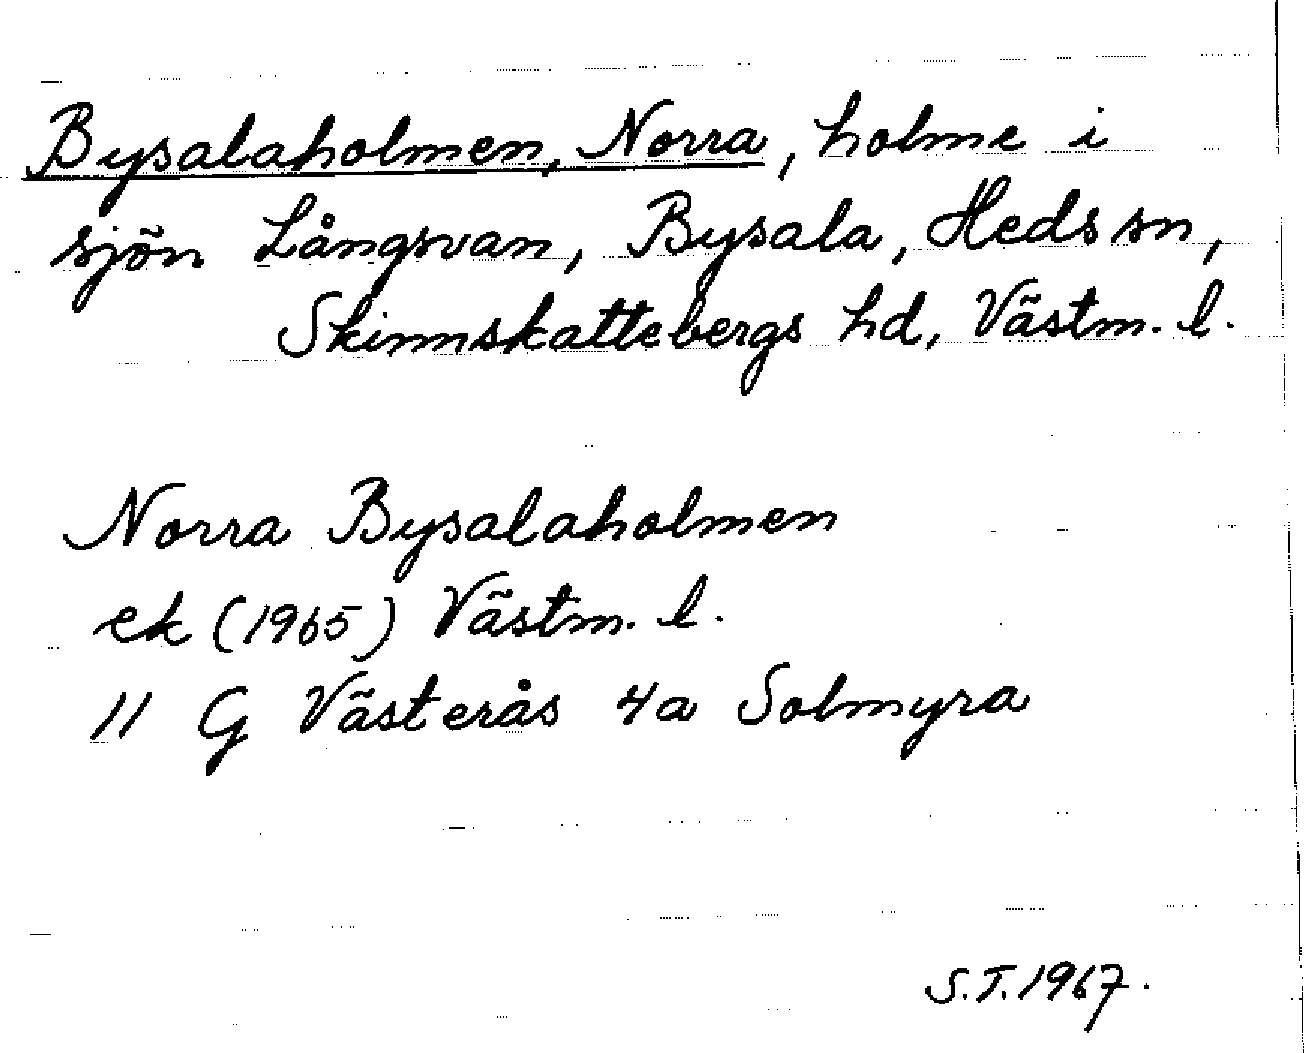 Bysalaholmen, Norra, holme i
sjön Långsvan, Bysala, Heds sn,
Skinnskattebergs hd, Västm. l.
Norra Bysalaholmen
ek (1965) Västm. l.
11 G Västerås 4a Solmyra
S.T. 1967.